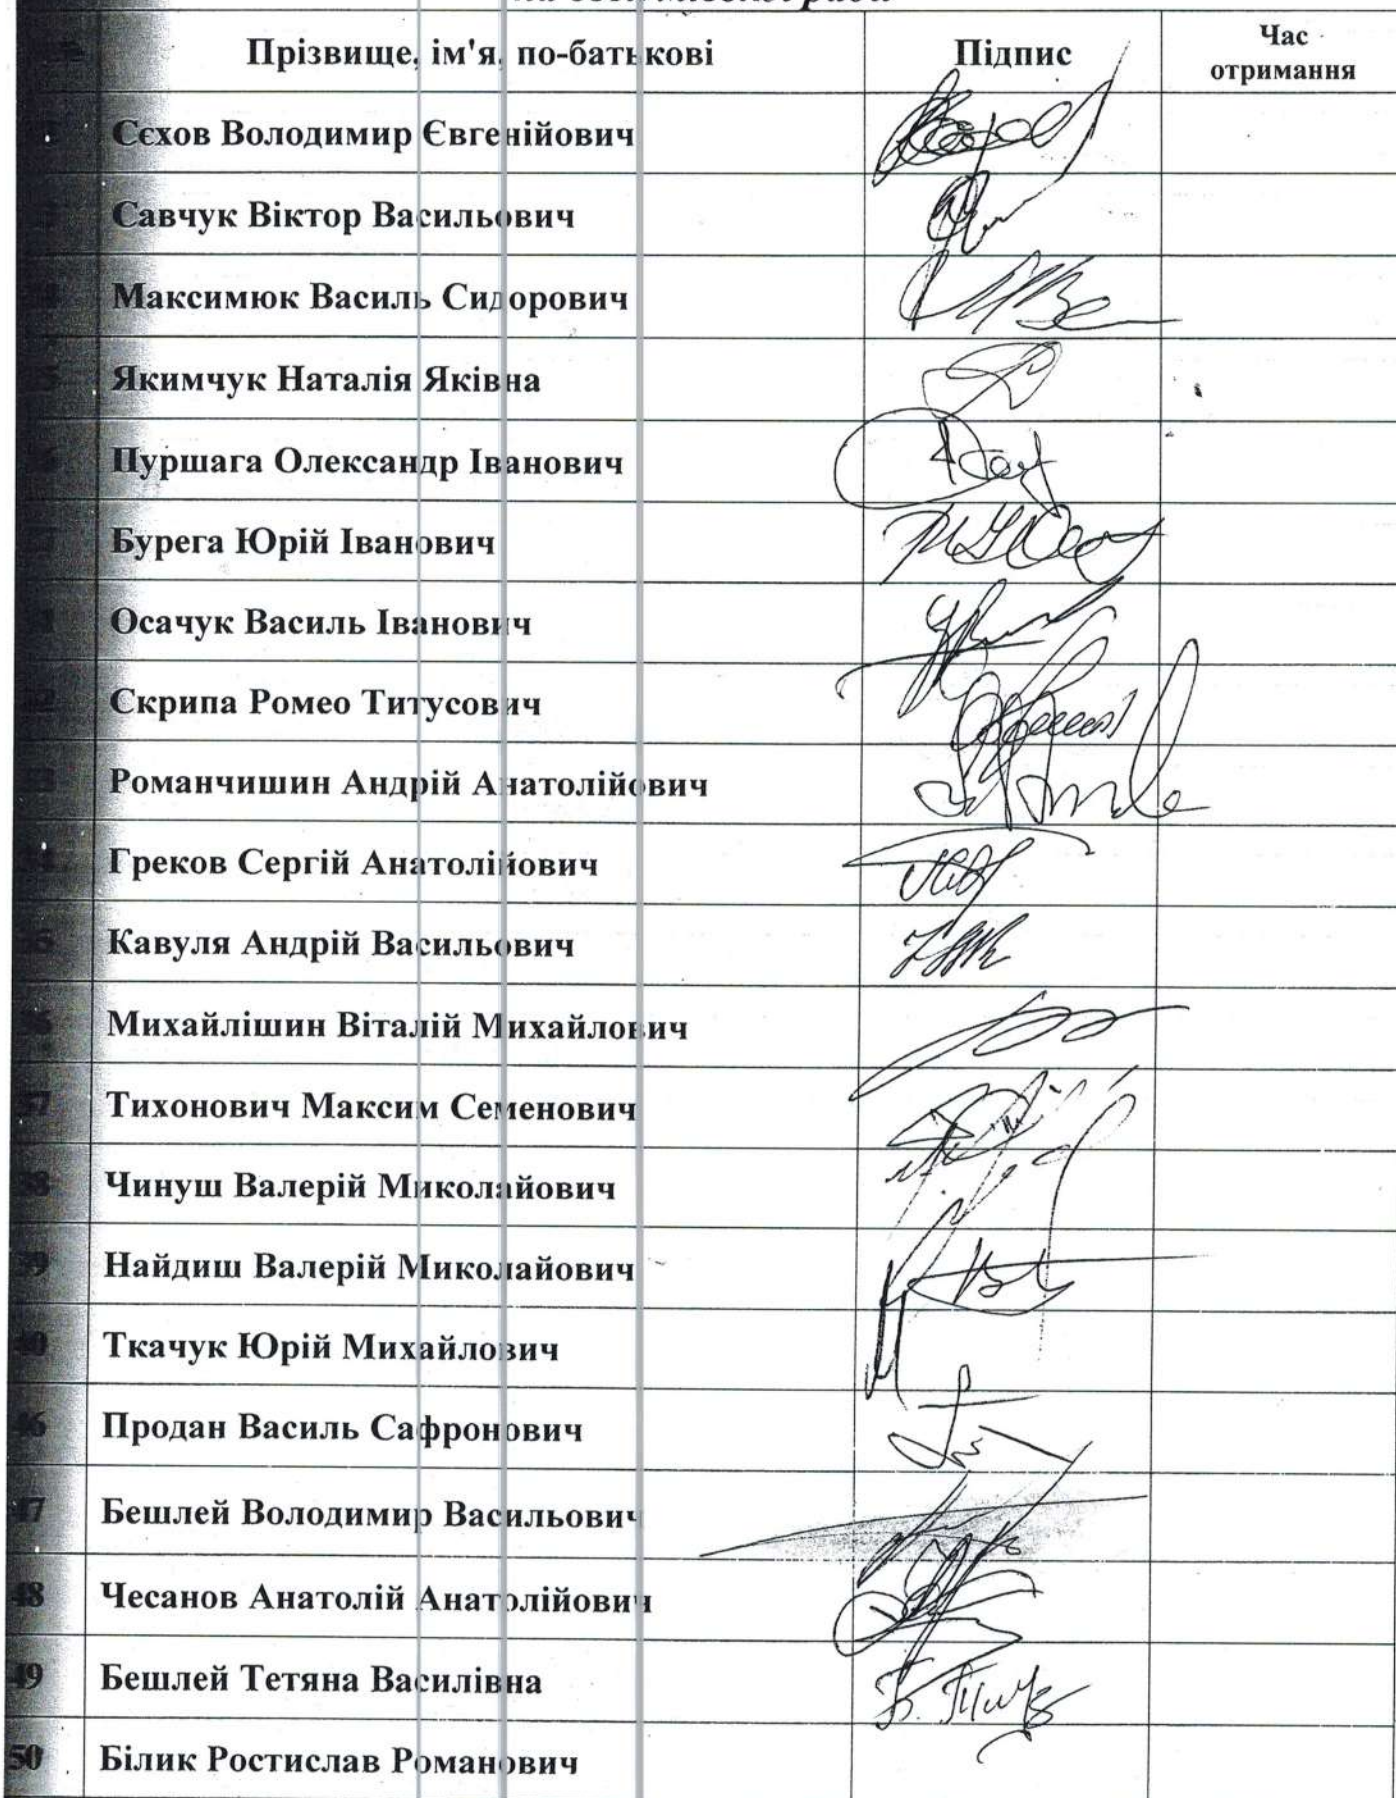 Прізвище, ім'я, по-батькові Підпис Час
отримання
Сєхов Володимир Євгенійович
Савчук Віктор Васильович
Максимюк Василь Сидорович
Якимчук Наталія Яківна
Пуршага Олександр Іванович
Бурега Юрій Іванович
Осачук Василь Іванович
Скрипа Ромео Титусович
Романчишин Андрій Анатолійович
Греков Сергій Анатолійович
Кавуля Андрій Васильович
Михайлішин Віталій Михайлович
37 Тихонович Максим Семенович
38 Чинуш Валерій Миколайович
39 Найдиш Валерій Миколайович
40 Ткачук Юрій Михайлович
46 Продан Василь Сафронович
47 Бешлей Володимир Васильович
48 Чесанов Анатолій Анатолійович
49 Бешлей Тетяна Василівна
50 Білик Ростислав Романович